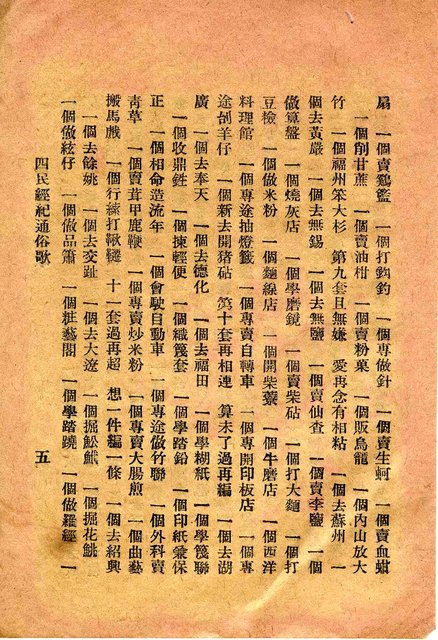 扇 一個賣鷄籃 一個打鈎釣 一個專做針 一個賣生蚵 一個賣血蚶
一個削甘蔗 一個賣油柑 一個賣粉菓 一個販鳥籠 一個內山放大
竹 一個福州笨大杉 第九套且無嫌 愛再念有相粘 一個去蘇州 一
個去黃嚴 一個去無錫 一個去無鹽 一個賣仙查 一個賣李鹽 一個
做算盤 一個燒灰店 一個學磨鏡 一個賣柴砧 一個打大麵 一個打
豆檢 一個做米粉 一個麵線店 一個開柴藔 一個牛磨店 一個西洋
料理館 一個專途抽燈籤 一個專賣自轉車 一個專開印板店 一個專
途刣羊仔 一個新去開猪砧 第十套再相連 算未了過再編 一個去湖
廣 一個去奉天 一個去德化 一個去福田 一個學糊紙 一個學篾聯
一個收鼎鉎 一個揀輕便 一個織篾套 一個學踏鉛 一個印紙彙保
正 一個相命造流年 一個會駛自動車 一個專途做竹聯 一個外科賣
靑草 一個賣茸甲鹿鞭 一個專賣炒米粉 一個專賣大腸煎 一個曲藝
搬馬戲 一個行線打鞦韆 十一套過再超 想一件編一條 一個去紹興
一個去餘姚 一個去交趾 一個去大遼 一個掘魩䱐 一個掘花鮡
一個做絃仔 一個做品簫 一個粧藝閣 一個學踏蹺 一個做羅經 一
四民經紀通俗歌 五